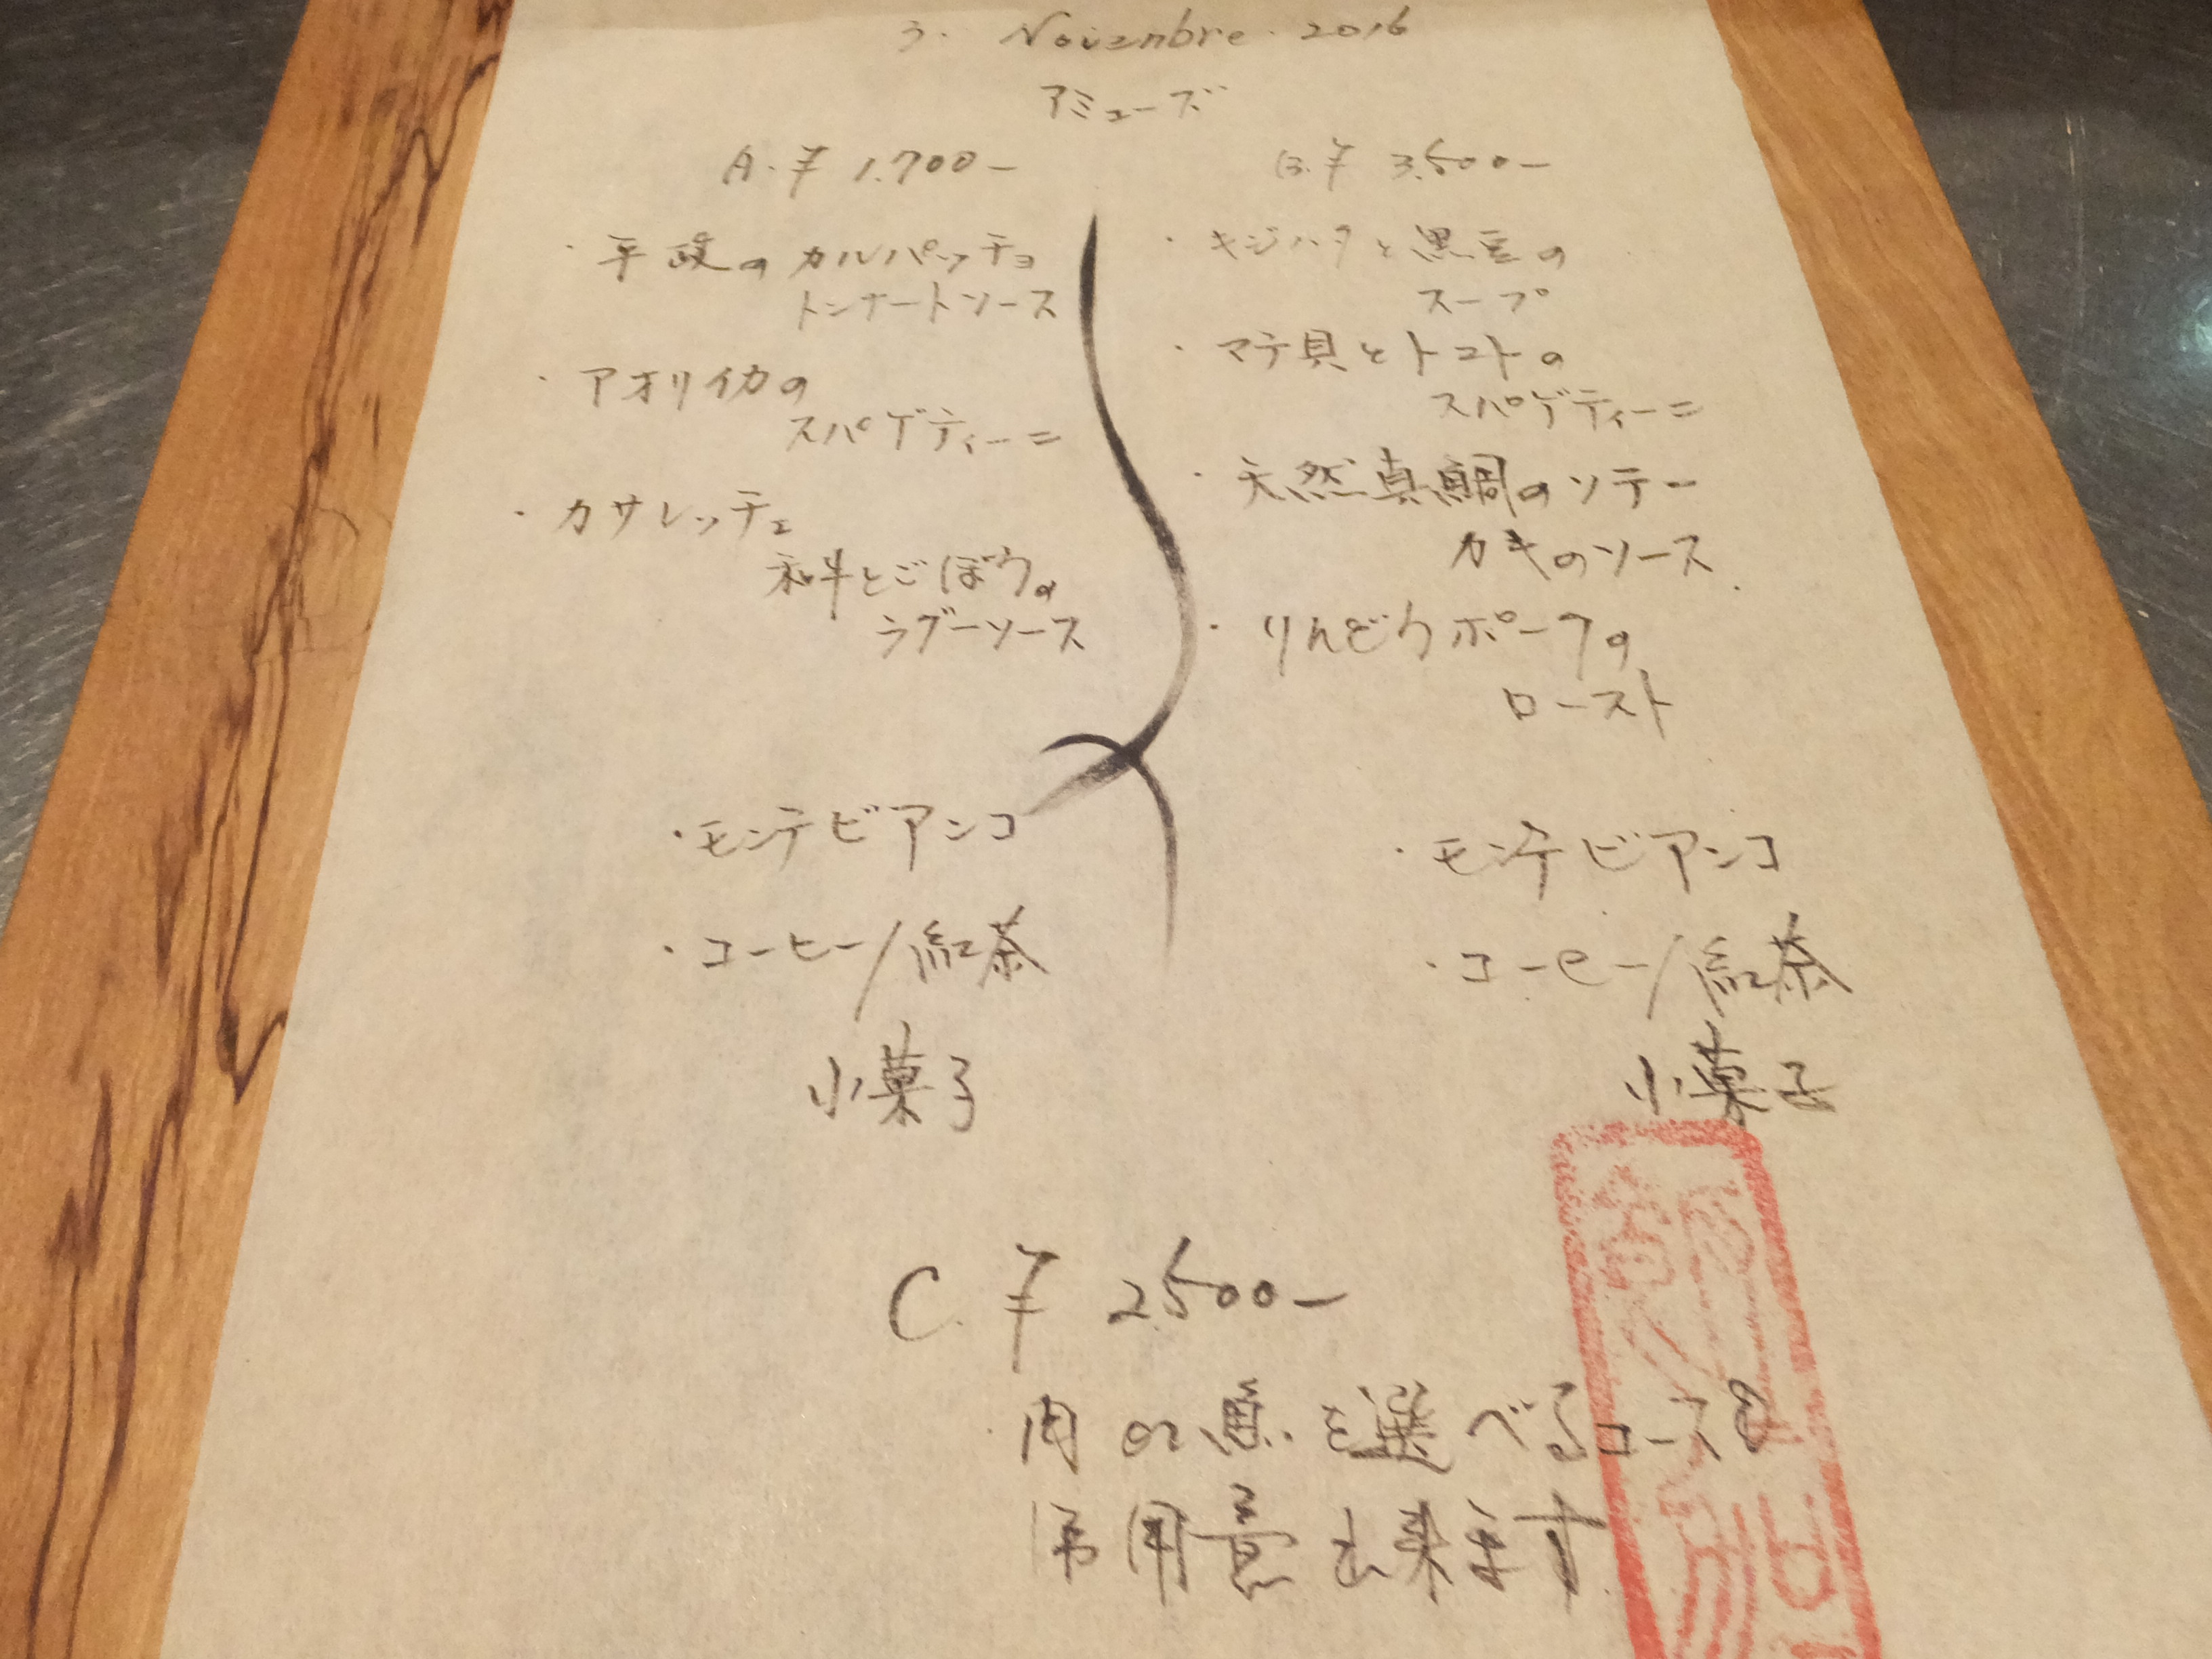 3. Novembre. 2016
アミューズ
A. ¥ 1.700-
・平政のカルパッチョ
トンナートソース
・アオリイカの
スパゲティーニ
・カサレッチェ
和牛とごぼうの
ラグーソース
・モンテビアンコ
・コーヒー/紅茶
小菓子
B. ¥ 3.500-
・キジハタと黒豆の
スープ
・マテ貝とトマトの
スパゲティーニ
・天然真鯛のソテー
カキのソース
・りんどうポークの
ロースト
・モンテビアンコ
・コーヒー/紅茶
小菓子
C. ¥ 2.500-
肉 or 魚を選べるコースを
御用意出来ます